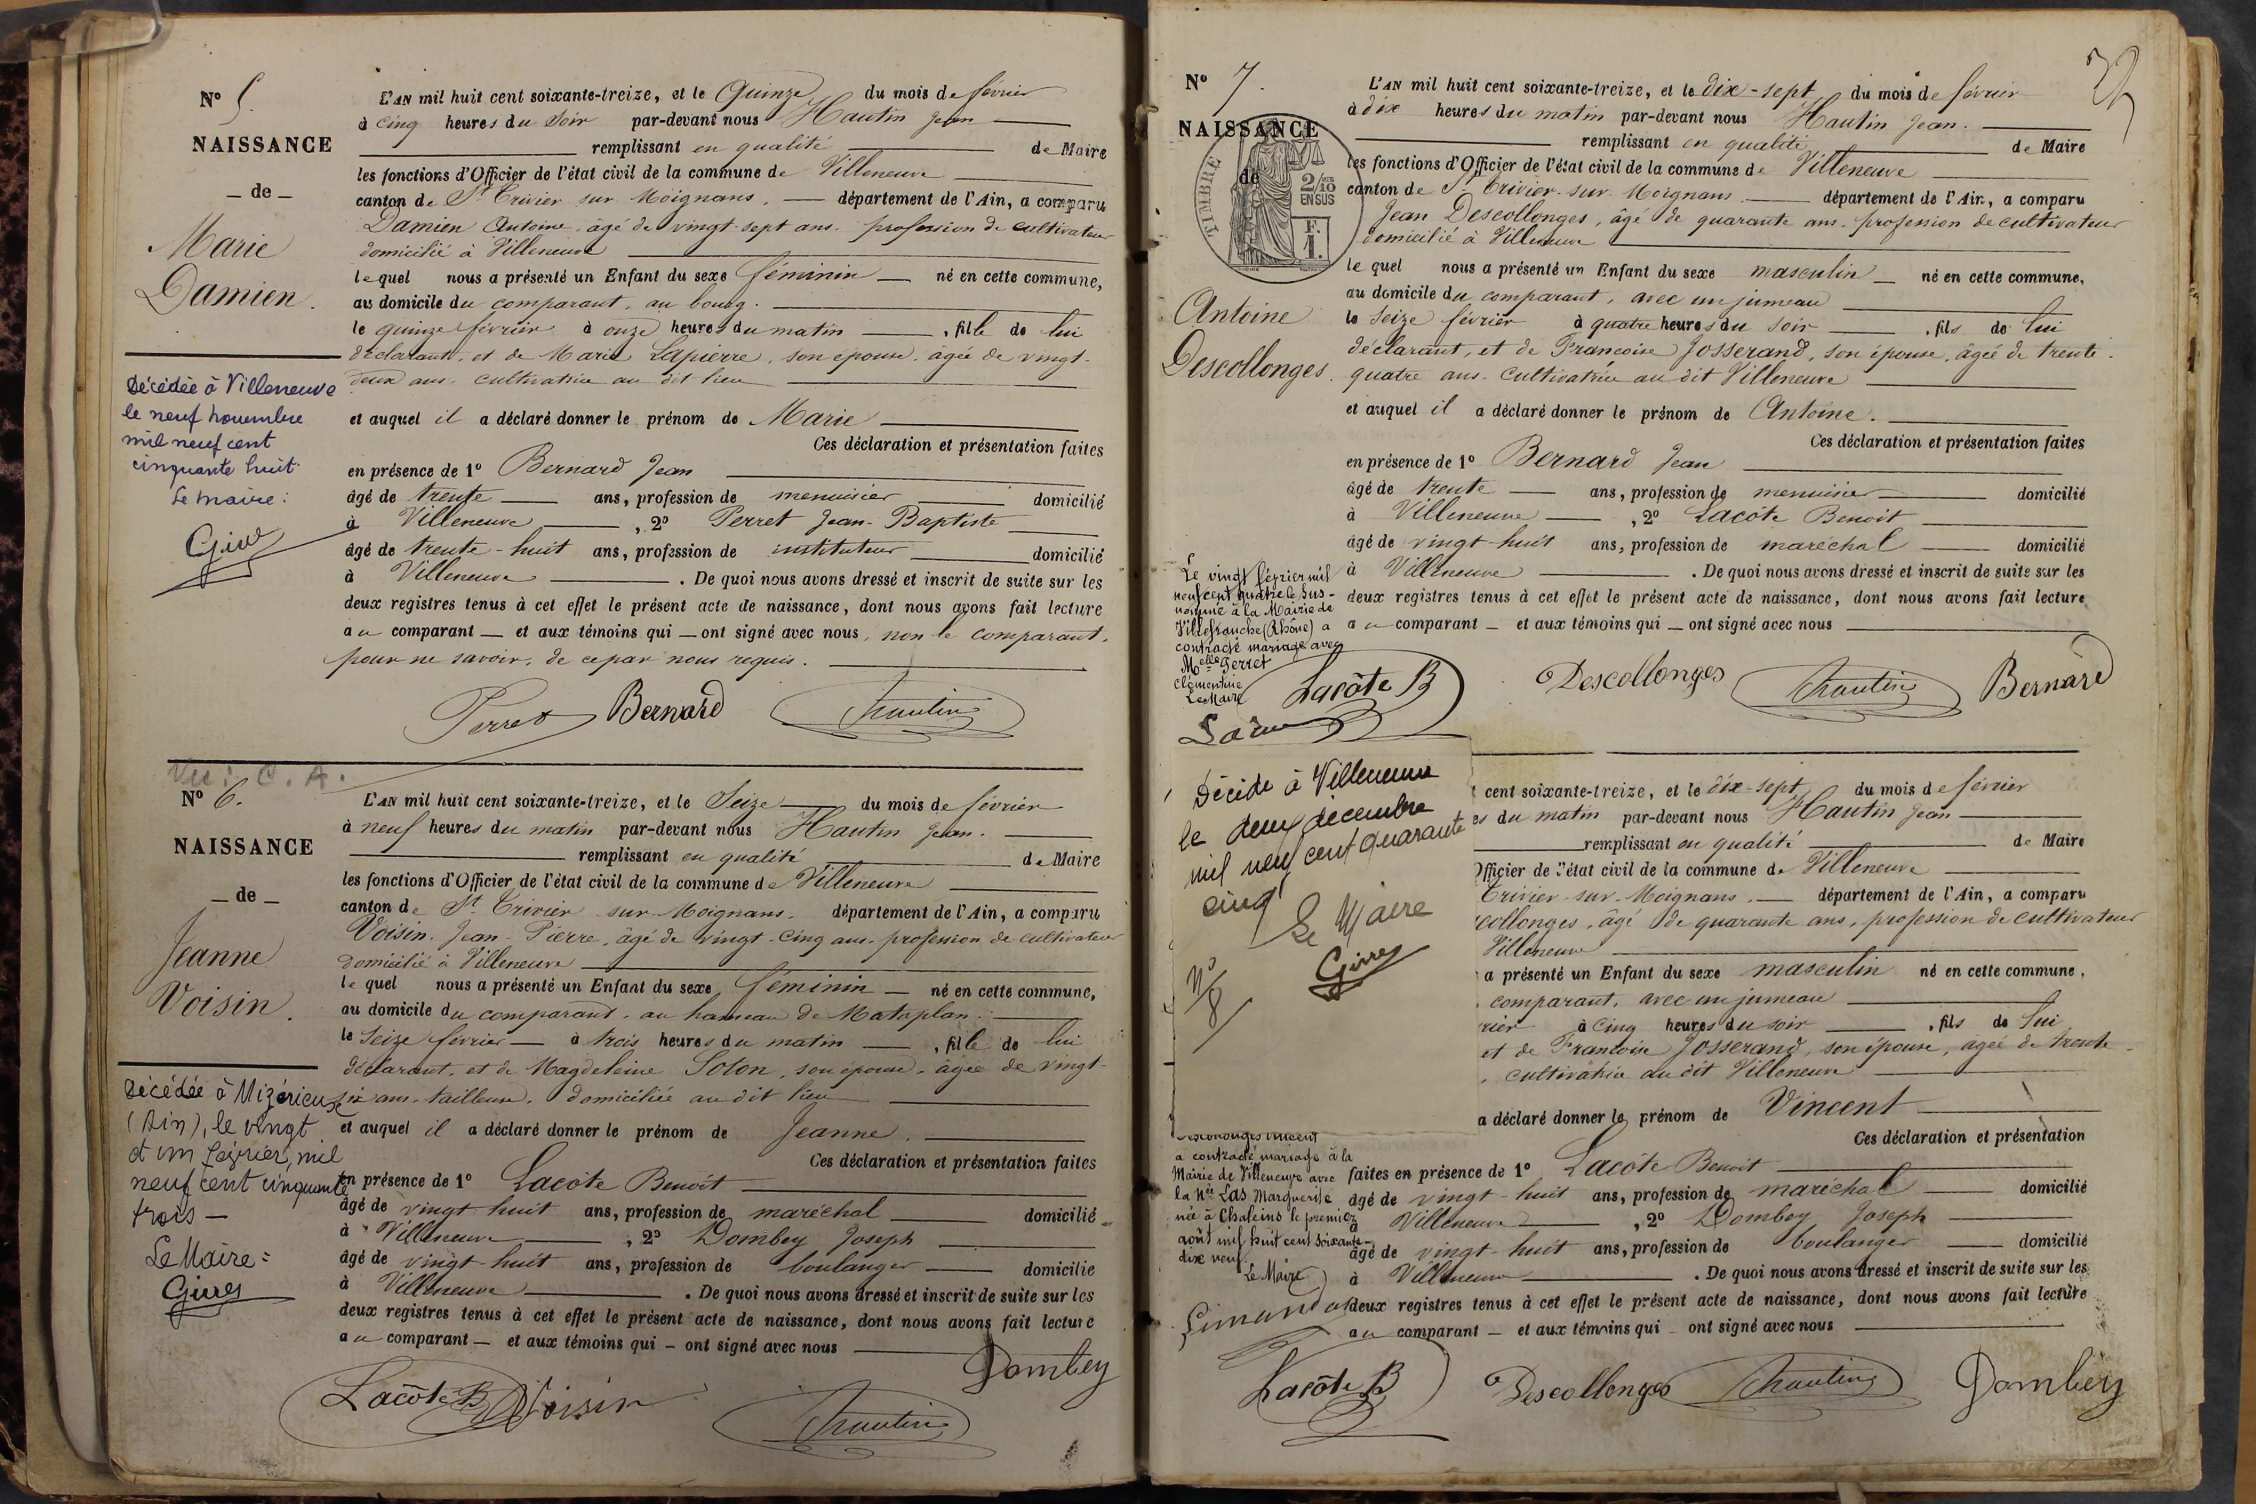 N° 5.
NAISSANCE
_ de _
Marie
Damien.
L'AN mil huit cent soixante-treize, et le Quinze du mois de février
à cinq heures du soir par-devant nous Hautin Jean
remplissant en qualité de Maire
les fonctions d'Officier de l'état civil de la commune de Villeneuve
canton de St Trivier sur Moignans. département de l'Ain, a comparu
Damien Antoine, âgé de vingt-sept ans. profession de cultivateur
domicilié à Villeneuve
lequel nous a présenté un Enfant du sexe féminin né en cette commune,
au domicile du comparant, au bourg.
le quinze février à onze heures du matin , fille de lui
déclarant, et de Marie Lapierre, son épouse, âgée de vingt-
deux ans. cultivatrice au dit lieu
et auquel il a déclaré donner le prénom de Marie
Ces déclaration et présentation faites
en présence de 1° Bernard Jean
âgé de trente ans, profession de menuisier domicilié
à Villeneuve , 2° Perret Jean-Baptiste
âgé de trente-huit ans, profession de instituteur domicilié
à Villeneuve . De quoi nous avons dressé et inscrit de suite sur les
deux registres tenus à cet effet le présent acte de naissance, dont nous avons fait lecture
au comparant et aux témoins qui ont signé avec nous, non le comparant,
pour ne savoir, de ce par nous requis.
Perret Bernard Hautin
Décédée à Villeneuve
le neuf novembre
mil neuf cent
cinquante huit
Le maire:
Vu: C. A.
N° 6.
NAISSANCE
_ de _
Jeanne
Voisin.
L'AN mil huit cent soixante-treize, et le Seize du mois de février
à neuf heures du matin par-devant nous Hautin Jean.
remplissant en qualité de Maire
les fonctions d'Officier de l'état civil de la commune de Villeneuve
canton de St Trivier sur Moignans. département de l'Ain, a comparu
Voisin Jean-Pierre, âgé de vingt-cinq ans. profession de cultivateur
domicilié à Villeneuve
lequel nous a présenté un Enfant du sexe féminin né en cette commune,
au domicile du comparant, au hameau de Mataplan.
le Seize février à trois heures du matin , fille de lui
déclarant et de Magdeleine Soton, son épouse, âgée de vingt-
six ans. tailleuse, domiciliée au dit lieu
et auquel il a déclaré donner le prénom de Jeanne.
Ces déclaration et présentation faites
en présence de 1° Lacôte Benoît
âgé de vingt huit ans, profession de maréchal domicilié
à Villeneuve , 2° Dombey Joseph
âgé de vingt-huit ans, profession de boulanger domicilié
à Villeneuve . De quoi nous avons dressé et inscrit de suite sur les
deux registres tenus à cet effet le présent acte de naissance, dont nous avons fait lecture
au comparant et aux témoins qui ont signé avec nous
Dombey
Lacôte B Voisin Hautin
Décédée à Mizérieux
(Ain), le vingt
et un février, mil
neuf cent cinquante
trois
Le Maire:
N° 7.
NAISSANCE
de
TIMBRE
2/10 EN SUS
F. 1.
Antoine
Descollonges.
L'AN mil huit cent soixante-treize, et le dix-sept du mois de février
à dix heures du matin par-devant nous Hautin Jean.
remplissant en qualité de Maire
les fonctions d'Officier de l'état civil de la commune de Villeneuve
canton de St Trivier-sur-Moignans département de l'Ain, a comparu
Jean Descollonges, âgé de quarante ans, profession de cultivateur
domicilié à Villeneuve
lequel nous a présenté un Enfant du sexe masculin né en cette commune,
au domicile du comparant, avec un jumeau
le seize février à quatre heures du soir , fils de lui
déclarant, et de Françoise Josserand, son épouse, âgée de trente-
quatre ans. cultivatrice au dit Villeneuve
et auquel il a déclaré donner le prénom de Antoine.
Ces déclaration et présentation faites
en présence de 1° Bernard Jean
âgé de trente ans, profession de menuisier domicilié
à Villeneuve , 2° Lacôte Benoît
âgé de vingt-huit ans, profession de maréchal domicilié
à Villeneuve . De quoi nous avons dressé et inscrit de suite sur les
deux registres tenus à cet effet le présent acte de naissance, dont nous avons fait lecture
au comparant et aux témoins qui ont signé avec nous
Lacôte B Descollonges Hautin Bernard
Le vingt février mil
neuf cent quatre le sus-
nommé à la Mairie de
Villefranche (Rhône) a
contracté mariage avec
Melle Perret
Clémentine
Le Maire
Décédé à Villeneuve
le deux décembre
mil neuf cent quarante
cinq
Le Maire
N° 8
cent soixante-treize, et le dix-sept du mois de février
es du matin par-devant nous Hautin Jean
remplissant en qualité de Maire
Officier de l'état civil de la commune de Villeneuve
Trivier-sur-Moignans. département de l'Ain, a comparu
collonges, âgé de quarante ans, profession de cultivateur
Villeneuve
a présenté un Enfant du sexe masculin né en cette commune,
comparant, avec un jumeau
rier à cinq heures du soir , fils de lui
et de Françoise Josserand, son épouse, âgée de trente-
, cultivatrice au dit Villeneuve
a déclaré donner le prénom de Vincent
Ces déclaration et présentation
faites en présence de 1° Lacôte Benoît
âgé de vingt-huit ans, profession de maréchal domicilié
à Villeneuve , 2° Dombey Joseph
âgé de vingt-huit ans, profession de boulanger domicilié
à Villeneuve . De quoi nous avons dressé et inscrit de suite sur les
deux registres tenus à cet effet le présent acte de naissance, dont nous avons fait lecture
au comparant et aux témoins qui ont signé avec nous
Lacôte B Descollonges Hautin Dombey
Descollonges Vincent
a contracté mariage à la
Mairie de Villeneuve avec
la née Las Marguerite
née à Chaleins le premier
août mil huit cent soixante-
dix neuf
Le Maire